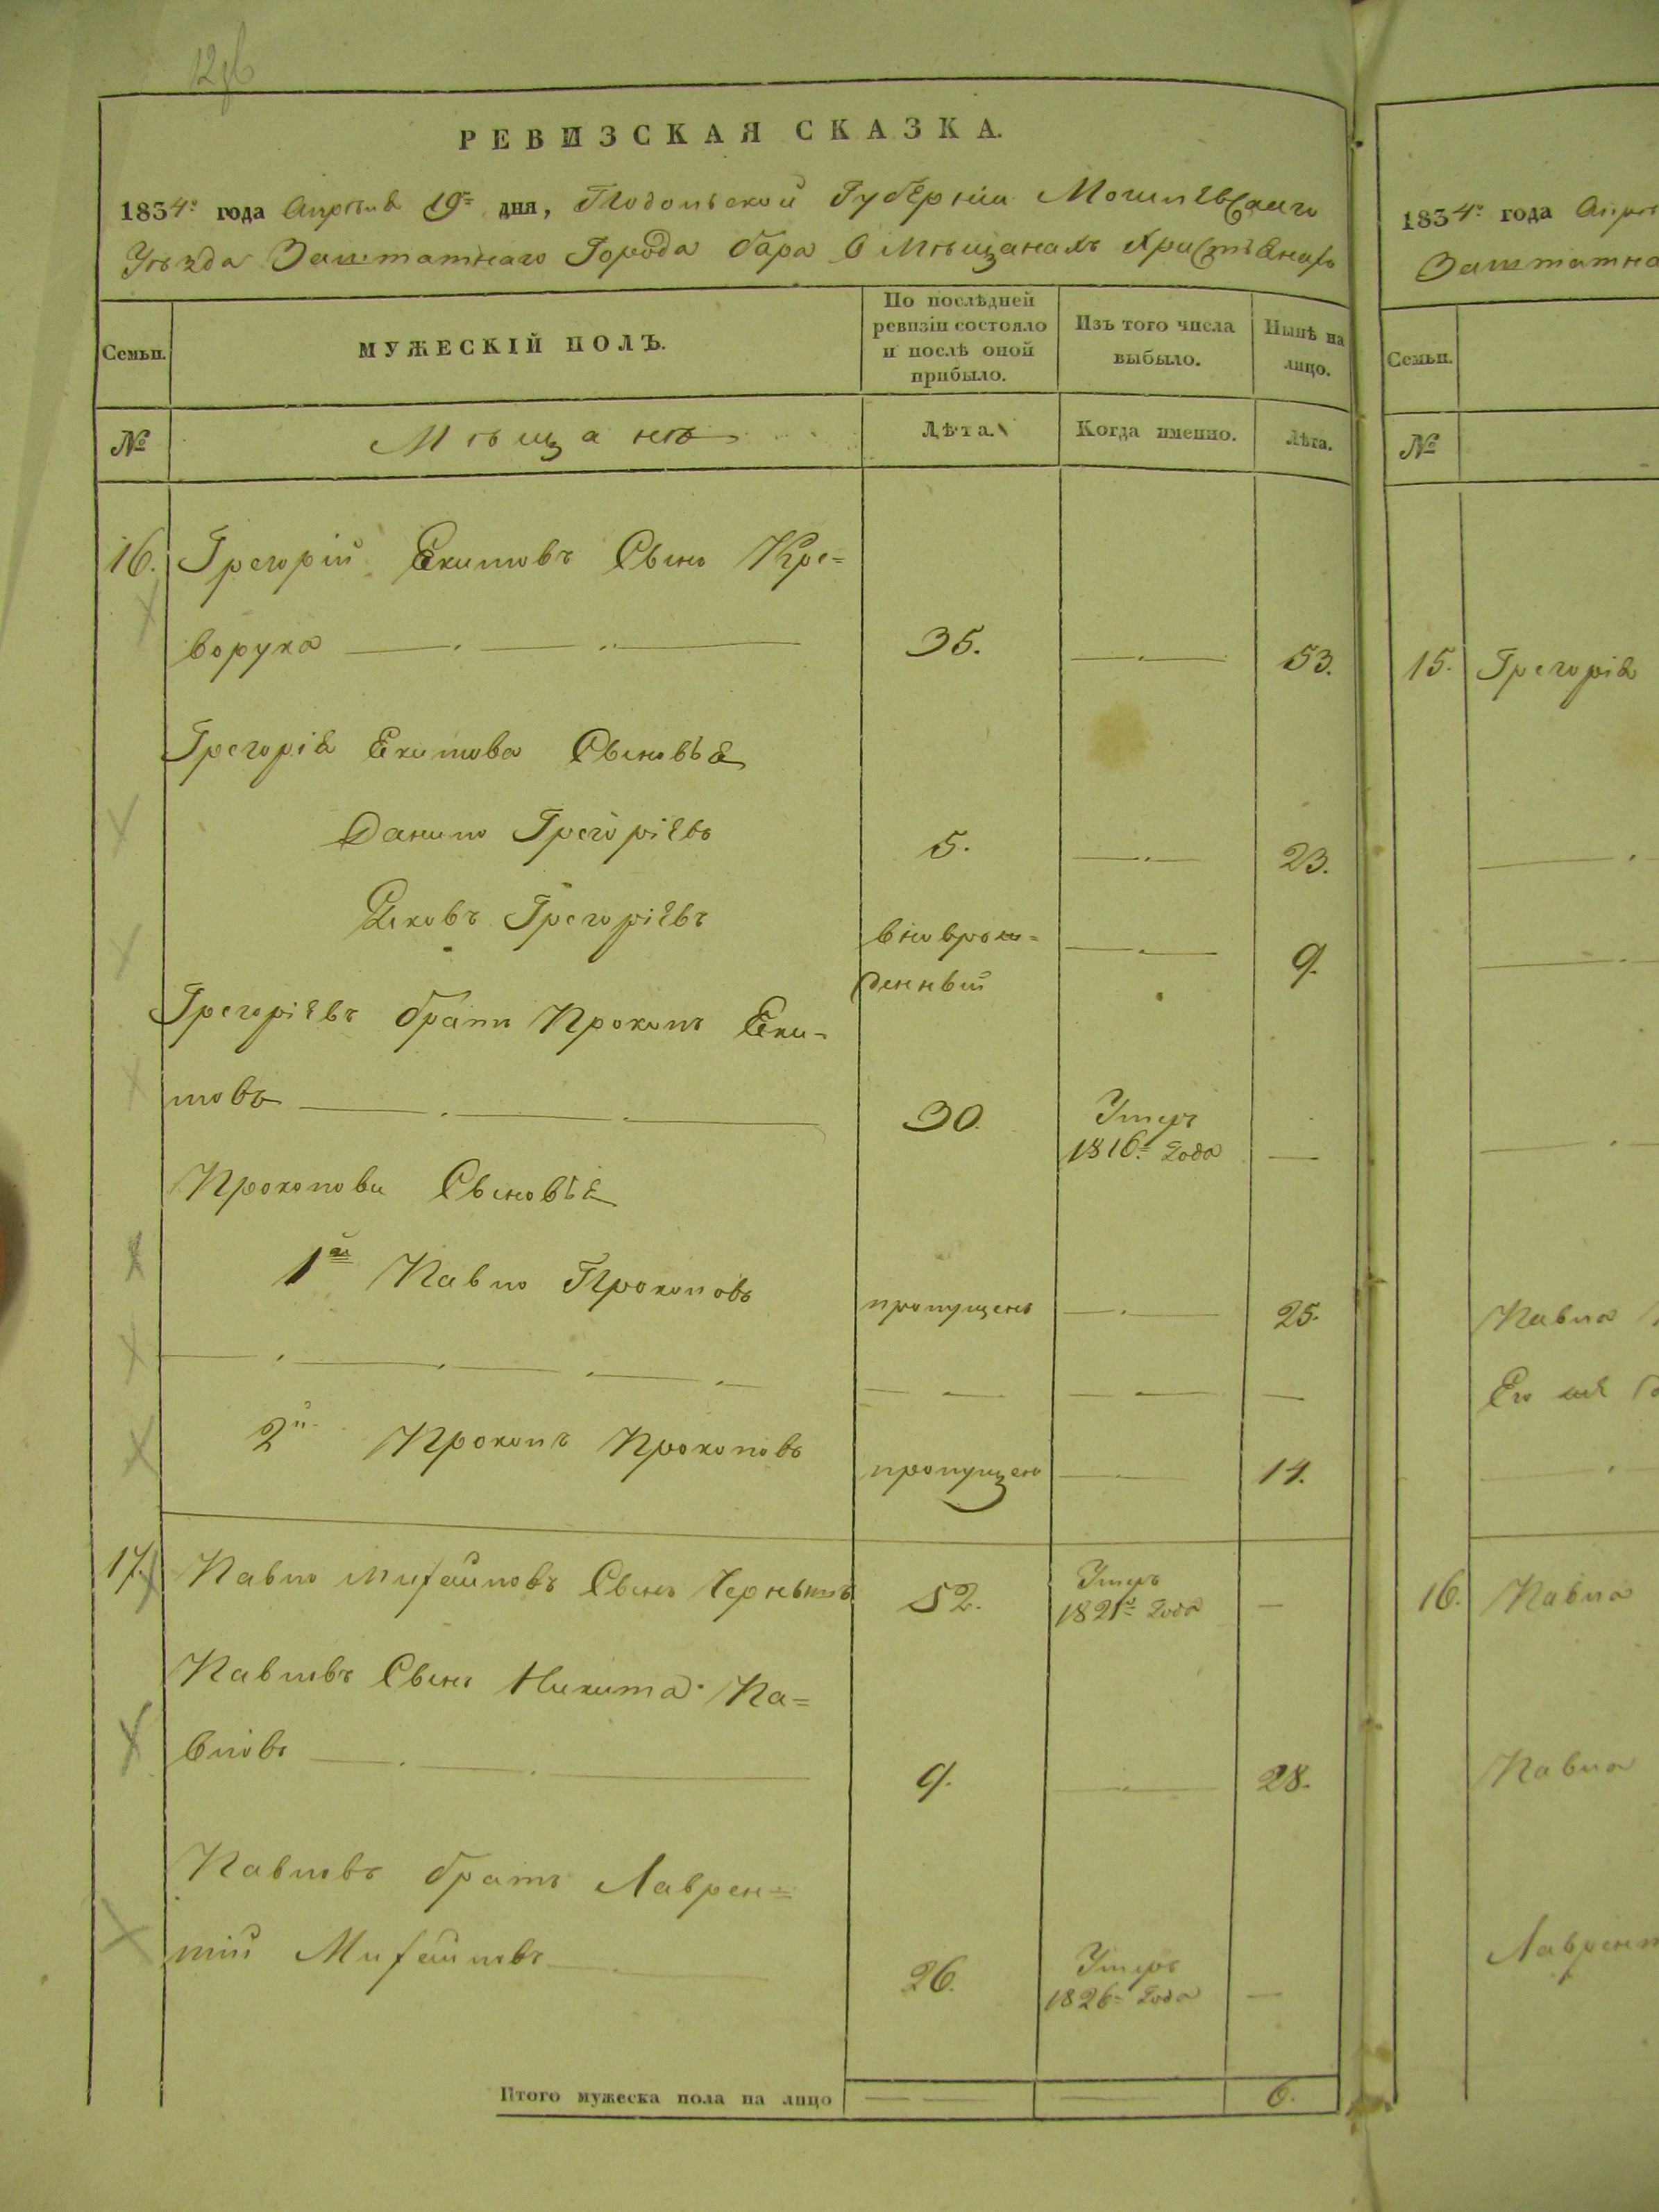 12об
РЕВИЗСКАЯ СКАЗКА.
1834го года Апреля 19го дня, Подольской Губерніи Могилевскаго
Уѣзда Заштатнаго Города Бара О Мѣщанахъ Христіанахъ
Семьи.
МУЖЕСКІЙ ПОЛЪ.
По послѣдней
ревизіи состояло
и послѣ оной
прибыло.
Изъ того числа
выбыло.
Нынѣ на
лицо.
№
Мѣщане
Лѣта.
Когда именно.
Лѣта.
16. Грегорій Екимовъ Сынъ Кре=
ворука 35. 53.
Грегорія Екимова Сыновья
Данило Грегоріевъ 5. 23.
Яковъ Грегоріевъ вноврож=
денный 9.
Грегоріевъ братъ Прокопъ Еки-
мовъ 30. Умеръ
1816го года —
Прокопови Сыновья
1й Павло Прокоповъ пропущенъ 25.
2й Прокопъ Прокоповъ пропущенъ 14.
17. Павло Михайловъ Сынъ Чернышъ 52. Умеръ
1821го года —
Павловъ Сынъ Никита Па=
вловъ 9. 28.
Павловъ братъ Лаврен=
тій Михайловъ 26. Умеръ
1826го года —
Итого мужеска пола на лицо 6.
1834го года
Заштатна
Семьи.
№
15. Грегорія
Павла
Его
16. Павла
Павла
Лаврент